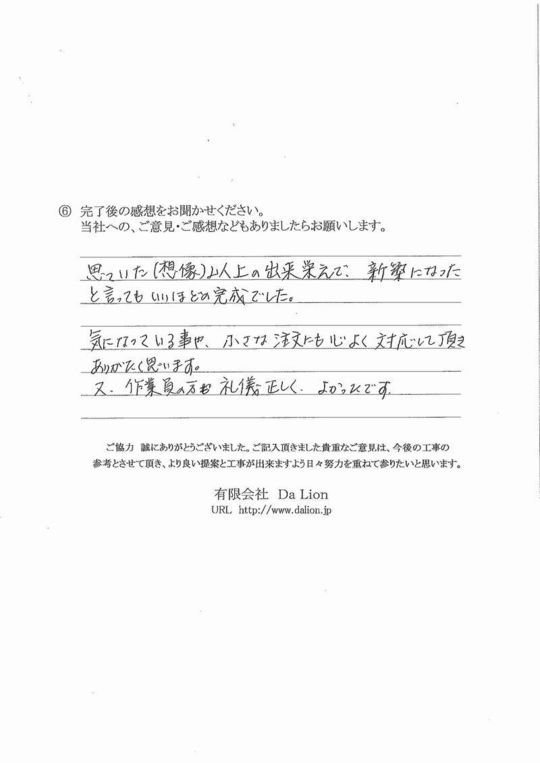 ⑥ 完了後の感想をお聞かせください。
当社への、ご意見・ご感想などもありましたらお願いします。
思っていた(想像)以上の出来栄えで、新築になった
と言ってもいいほどの完成でした。
気になっている事や、小さな注文にも心よく対応して頂き
ありがたく思います。
又、作業員の方も礼儀正しく、よかったです。
ご協力 誠にありがとうございました。ご記入頂きました貴重なご意見は、今後の工事の
参考とさせて頂き、より良い提案と工事が出来ますよう日々努力を重ねて参りたいと思います。
有限会社 Da Lion
URL http://www.dalion.jp